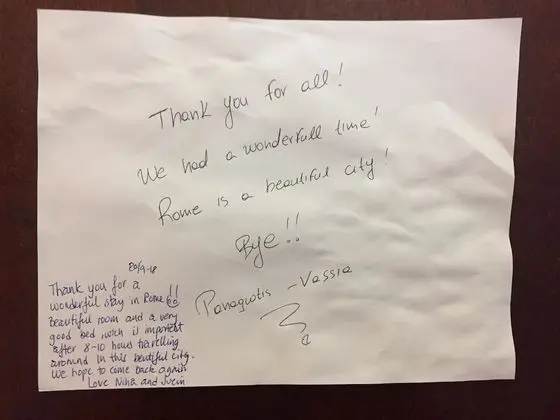 Thank you for all!
We had a wonderfull time!
Rome is a beautiful city!
Bye!!
Panagiotis - Vassia
20/9-18
Thank you for a
wonderful stay in Rome!!
Beautiful room and a very
good bed, wich is important
after 8-10 hours travelling
around in this beutiful city.
We hope to come back again
Love Nina and